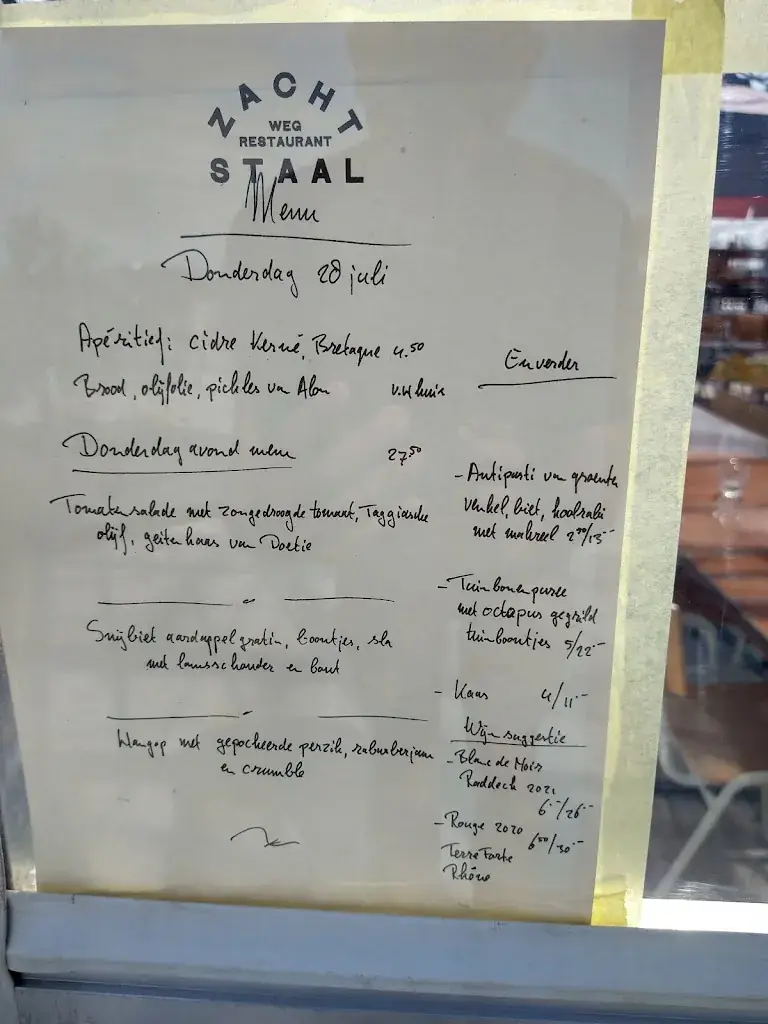 ZACHT
WEG
RESTAURANT
STAAL
Menu
Donderdag 28 juli
Apéritief: cidre Kerné, Bretagne 4.50
Brood, olijfolie, pickles van Alon v.h huis
Donderdag avond menu 27,50
Tomaten salade met zongedroogde tomaat, Taggiasche
olijf, geiten kaas van Doetie
Snijbiet aardappel gratin, boontjes, sla
met lamsschouder en bout
Hangop met gepocheerde perzik, rabarberjam
en crumble
En verder
- Antipasti van groente
venkel, biet, koolrabi
met makreel
- Tuinbonenpuree
met octapus gegrild
tuinboontjes 5/22.-
- Kaas 4/11.-
Wijn suggestie
- Blanc de Noir
Raddeck 2021
6.-/26.-
- Rouge 2020 6,50/30.-
Terre Forte
Rhône